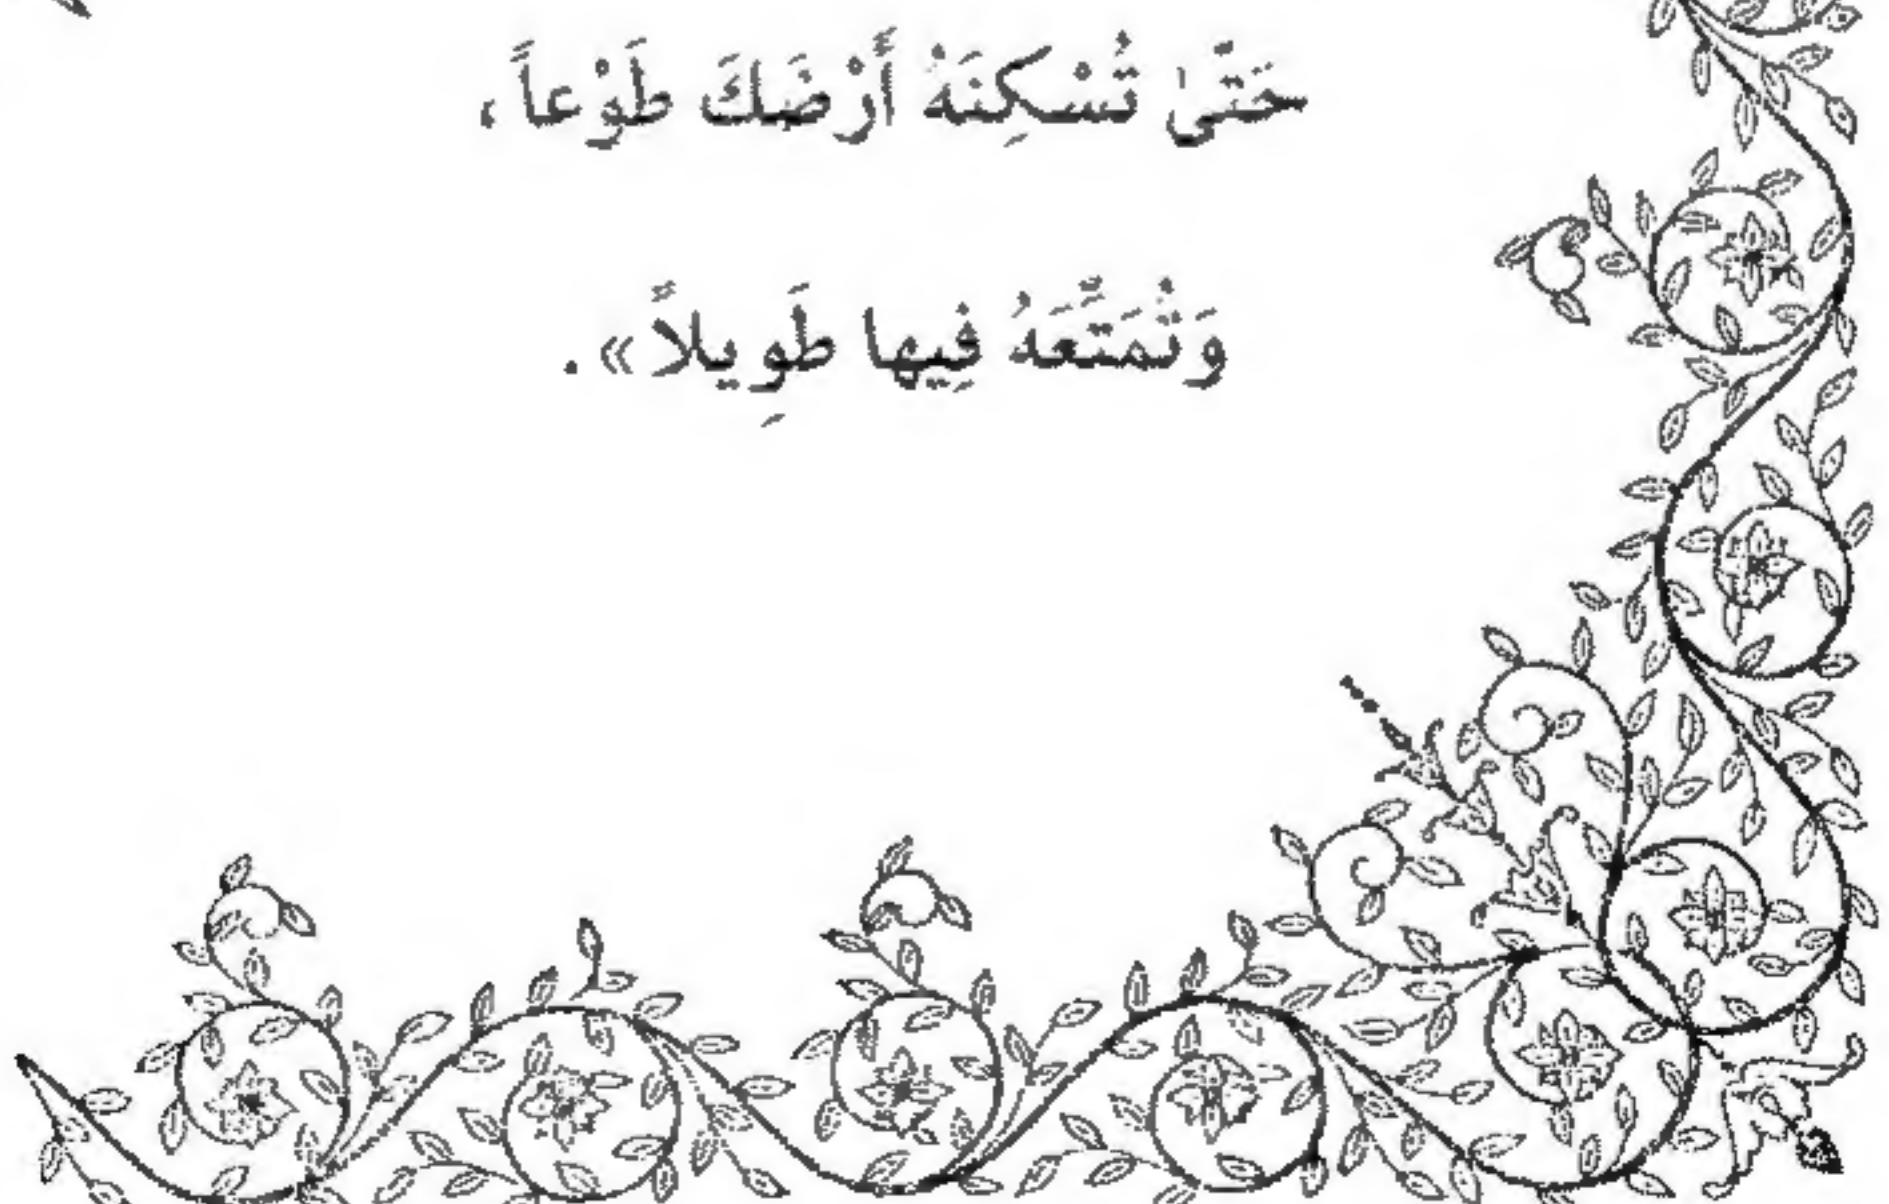 حَتَّىٰ تُسْكِنَهُ أَرْضَكَ طَوْعاً،
وَتُمَتِّعَهُ فِيها طَوِيلاً».